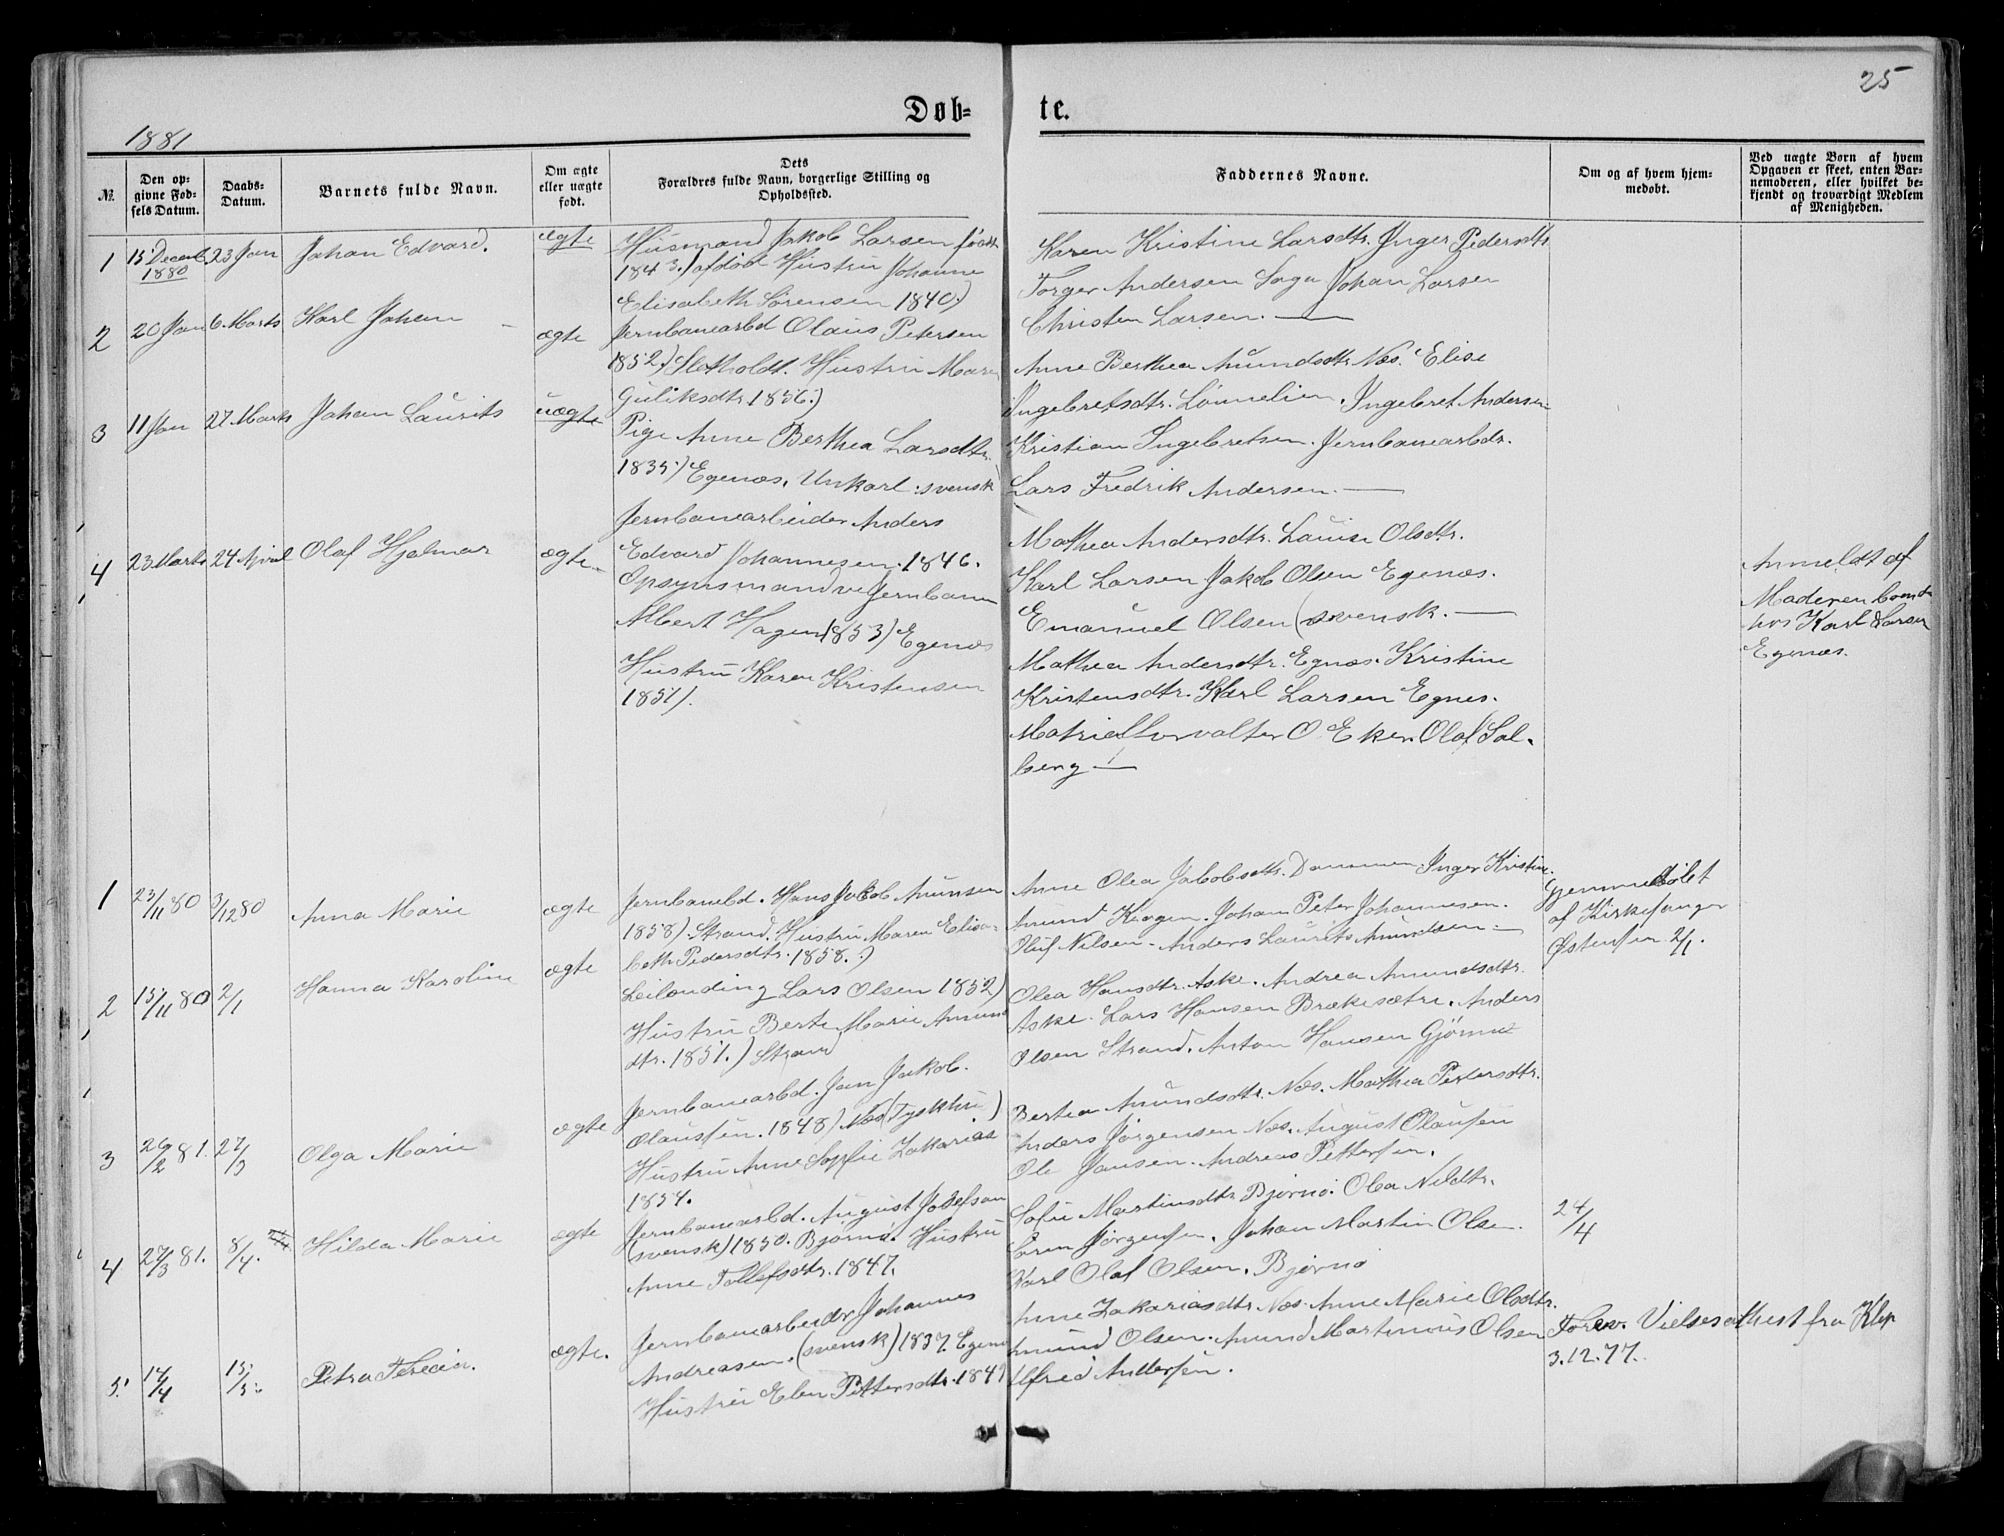 25
Døb-
te.
1881
№.
Den op-
givne Fød-
sels Datum.
Daabs-
Datum.
Barnets fulde Navn.
Om ægte
eller uægte
født.
Dets
Forældres fulde Navn, borgerlige Stilling og
Opholdssted.
Faddernes Navne.
Om og af hvem hjem-
medøbt.
Ved uægte Børn af hvem
Opgaven er skeet, enten Bar-
nemoderen, eller hvilket be-
kjendt og troværdigt Medlem
af Menigheden.
1
15 Decemb.
1880
23 Jan
Johan Edvard.
ægte
Husmand Jakob Larsen født
1843.) afdød Hustru Johanne
Elisabeth Sørensen 1840.)
Karen Kristine Larsdtr. Inger Pedersdtr.
Torger Andersen Johan Larsen
Christen Larsen. —
2
20 Jan
6 Marts
Karl Johan
ægte
Jernbanearbd Olaus Petersen
1852.) Sletholdt. Hustru Maren
Guliksdtr. 1856.)
Anne Berthea Amundsdtr. Næs. Elise
Ingebretsdtr. Lønnelien. Ingebret Andersen
Kristian Ingebretsen. Jernbanearbdr.
Lars Fredrik Andersen. —
3
11 Jan
27 Marts
Johan Laurits
uægte
Pige Anne Berthea Larsdtr.
1835.) Egenæs. Unkarl: svensk
Jernbanearbeider Anders
Edvard Johannesen. 1846.
Mathea Andersdtr. Louise Olsdtr.
Karl Larsen Jakob Olsen Egenæs.
Emanuel Olsen (svensk. —
Anmeldt af
Moderen boende
hos Karl Larsen
Egenæs.
4
23 Marts
24 April
Olaf Hjalmar
ægte
Opsynsmand ve Jernbanen
Albert Hagen 1853) Egenæs
Hustru Karen Kristensen
1851).
Mathea Andersdtr. Egnæs. Kristine
Kristensdtr. Karl Larsen Egnes.
Matrialforvalter O. Eker. Olaf Sol-
berg —
1
23/11 80
3/12 80
Anna Marie
ægte
Jernbanebd. Hans Jakob Amunsen
1858) Strand. Hustru Maren Elisa-
beth Pedersdtr. 1858.)
Anne Olea Jakobsdtr. Dammen. Inger Kristine
Amund Krogen. Johan Peter Johannesen.
Oluf Nilsen. Anders Laurits Amundsen —
Hjemmedøbt
af Kirkesanger
Østensen 2/1.
2
15/11 80
2/1
Hanna Karoline
ægte
Leilending Lars Olsen 1852)
Hustru Berte Marie Amund
dtr. 1851.) Strand
Olea Hansdtr. Aske. Andrea Amundsdtr.
Aske. Lars Hansen Brækesætre. Anders
Olsen Strand. Anton Hansen Gjørnæs
3
26/2 81.
27/3
Olga Marie
ægte
Jernbanearbd. Jan Jakob.
Olaussen. 1848) Næs
Hustru Anne Sophie Zakarias
1854.
Bertea Amundsdtr. Næs. Mathea Petersdtr.
Anders Jørgensen Næs. August Olaussen
Ole Jansen. Andreas Pettersen.
4
27/3 81.
8/4.
Hilda Marie
ægte
Jernbanearbd. August Josefson
(svensk) 1850. Bjørnø. Hustru
Anne Tollefsdtr. 1847.
Sofie Martinsdtr. Bjørnø. Olea Nildtr.
Even Jørgensen. Johan Martin Olsen.
Karl Olaf Olsen. Bjørnø
24/4
5.
14/4
15/5.
Petra
ægte.
Jernbanearbeider Johannes
Andreasen. (svensk) 1837. Egenæs
Hustru Elen Pettersdtr. 1849
Anne Zakariasdtr. Næs. Anne Marie Olsdtr.
Amund Olsen. Amund Martinius Olsen
Alfred Andersen.
Forev. Vielsesattest fra Klip
3.12.77.